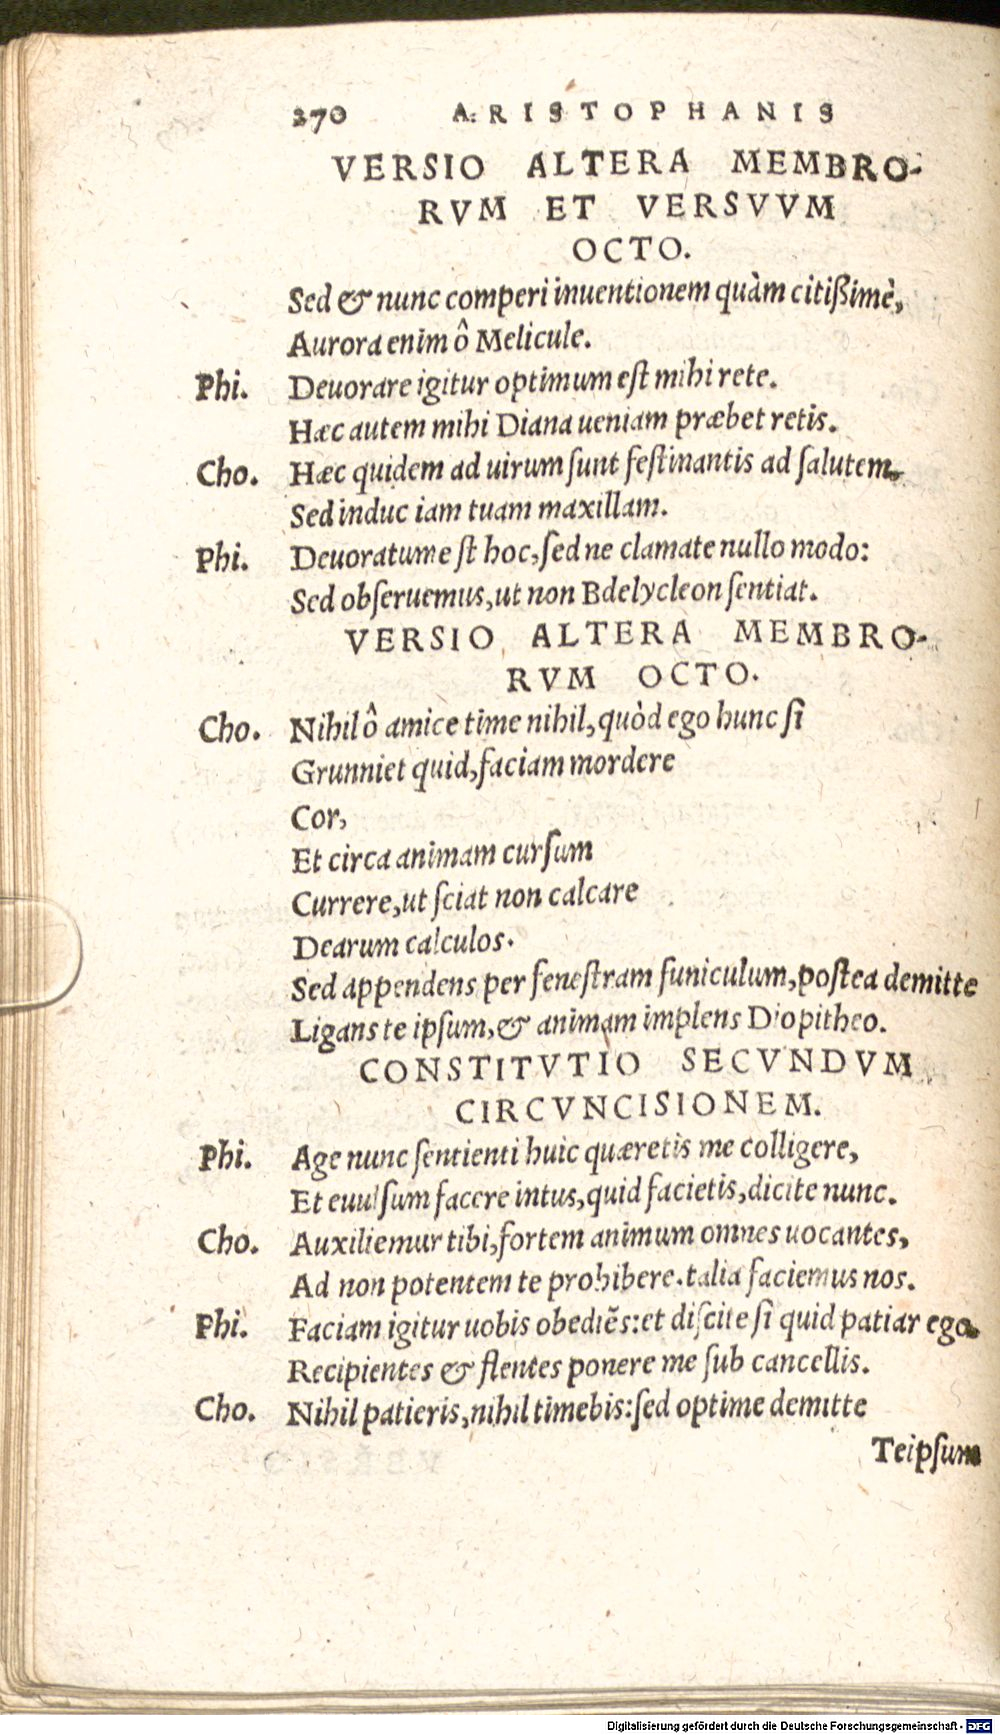 270 ARISTOPHANIS
VERSIO ALTERA MEMBRO-
RVM ET VERSVVM
OCTO.
Sed & nunc comperi inuentionem quàm citißimè,
Aurora enim ô Melicule.
Phi. Deuorare igitur optimum est mihi rete.
Hæc autem mihi Diana ueniam præbet retis.
Cho. Hæc quidem ad uirum ſunt feſtinantis ad ſalutem.
Sed induc iam tuam maxillam.
Phi. Deuoratum e ſt hoc, ſed ne clamate nullo modo:
Sed obſeruemus, ut non Bdelycleon ſentiat.
VERSIO ALTERA MEMBRO-
RVM OCTO.
Cho. Nihil ô amice time nihil, quòd ego hunc ſi
Grunniet quid, faciam mordere
Cor,
Et circa animam curſum
Currere, ut ſciat non calcare
Dearum calculos.
Sed appendens per feneſtram funiculum, poſtea demitte
Ligans te ipſum, & animam implens Diopitheo.
CONSTITVTIO SECVNDVM
CIRCVNCISIONEM.
Phi. Age nunc ſentienti huic quæretis me colligere,
Et euulſum facere intus, quid facietis, dicite nunc.
Cho. Auxiliemur tibi, fortem animum omnes uocantes,
Ad non potentem te prohibere. talia faciemus nos.
Phi. Faciam igitur uobis obediẽs: et diſcite ſi quid patiar ego.
Recipientes & flentes ponere me ſub cancellis.
Cho. Nihil patieris, nihil timebis: ſed optime demitte
Teipſum
Digitalisierung gefördert durch die Deutsche Forschungsgemeinschaft - DFG